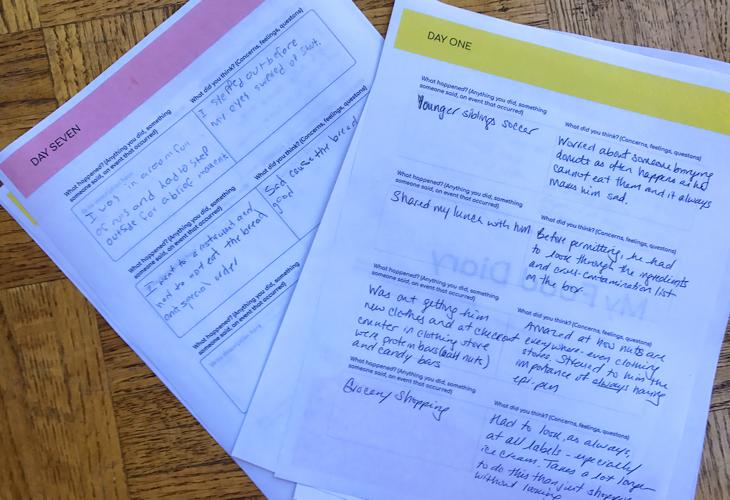 DAY SEVEN
What happened? (Anything you did, something
someone said, an event that occurred)
I was in a room full
of nuts and had to step
outside for a brief moment
What did you think? (Concerns, feelings, questions)
I stepped out before
my eyes swelled at shut.
What happened? (Anything you did, something
someone said, an event that occurred)
I went to a restaurant and
had to not eat the bread
and special order
What did you think? (Concerns, feelings, questions)
Sad cause the bread
good
What happened? (Anything you did, something
someone said, an event that occurred)
DAY ONE
What happened? (Anything you did, something
someone said, an event that occurred)
Younger siblings soccer
What did you think? (Concerns, feelings, questions)
Worried about someone bringing
donuts as often happens as he
cannot eat them and it always
makes him sad.
What happened? (Anything you did, something
someone said, an event that occurred)
Shared my lunch with him
What did you think? (Concerns, feelings, questions)
Before permitting, he had
to look through the ingredients
and cross-contamination list
on the box.
My Food Diary
What happened? (Anything you did, something
someone said, an event that occurred)
Was out getting him
new clothes and at checkout
counter in clothing store
were protein bars (all nuts)
and candy bars
What did you think? (Concerns, feelings, questions)
Amazed at how nuts are
everywhere - even clothing
stores. Stressed to him the
importance of always having
epi-pen
What happened? (Anything you did, something
someone said, an event that occurred)
Grocery shopping
What did you think? (Concerns, feelings, questions)
Had to look, as always,
at all labels - especially
ice cream. Takes a lot longer
to do this than just shopping
without looking